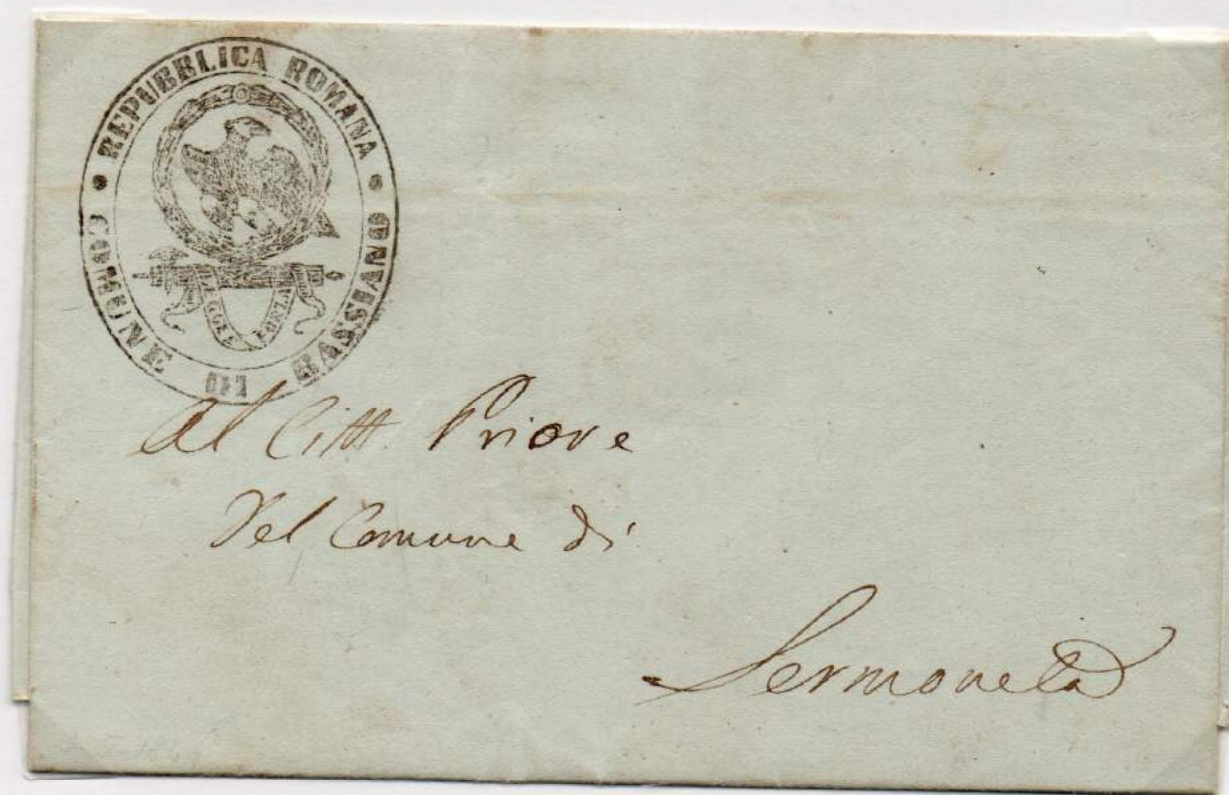 REPUBBLICA ROMANA • COMUNE DI BASSIANO •
LEGGE FORZA
Al Citt. Priore
Del Comune di
Sermoneta